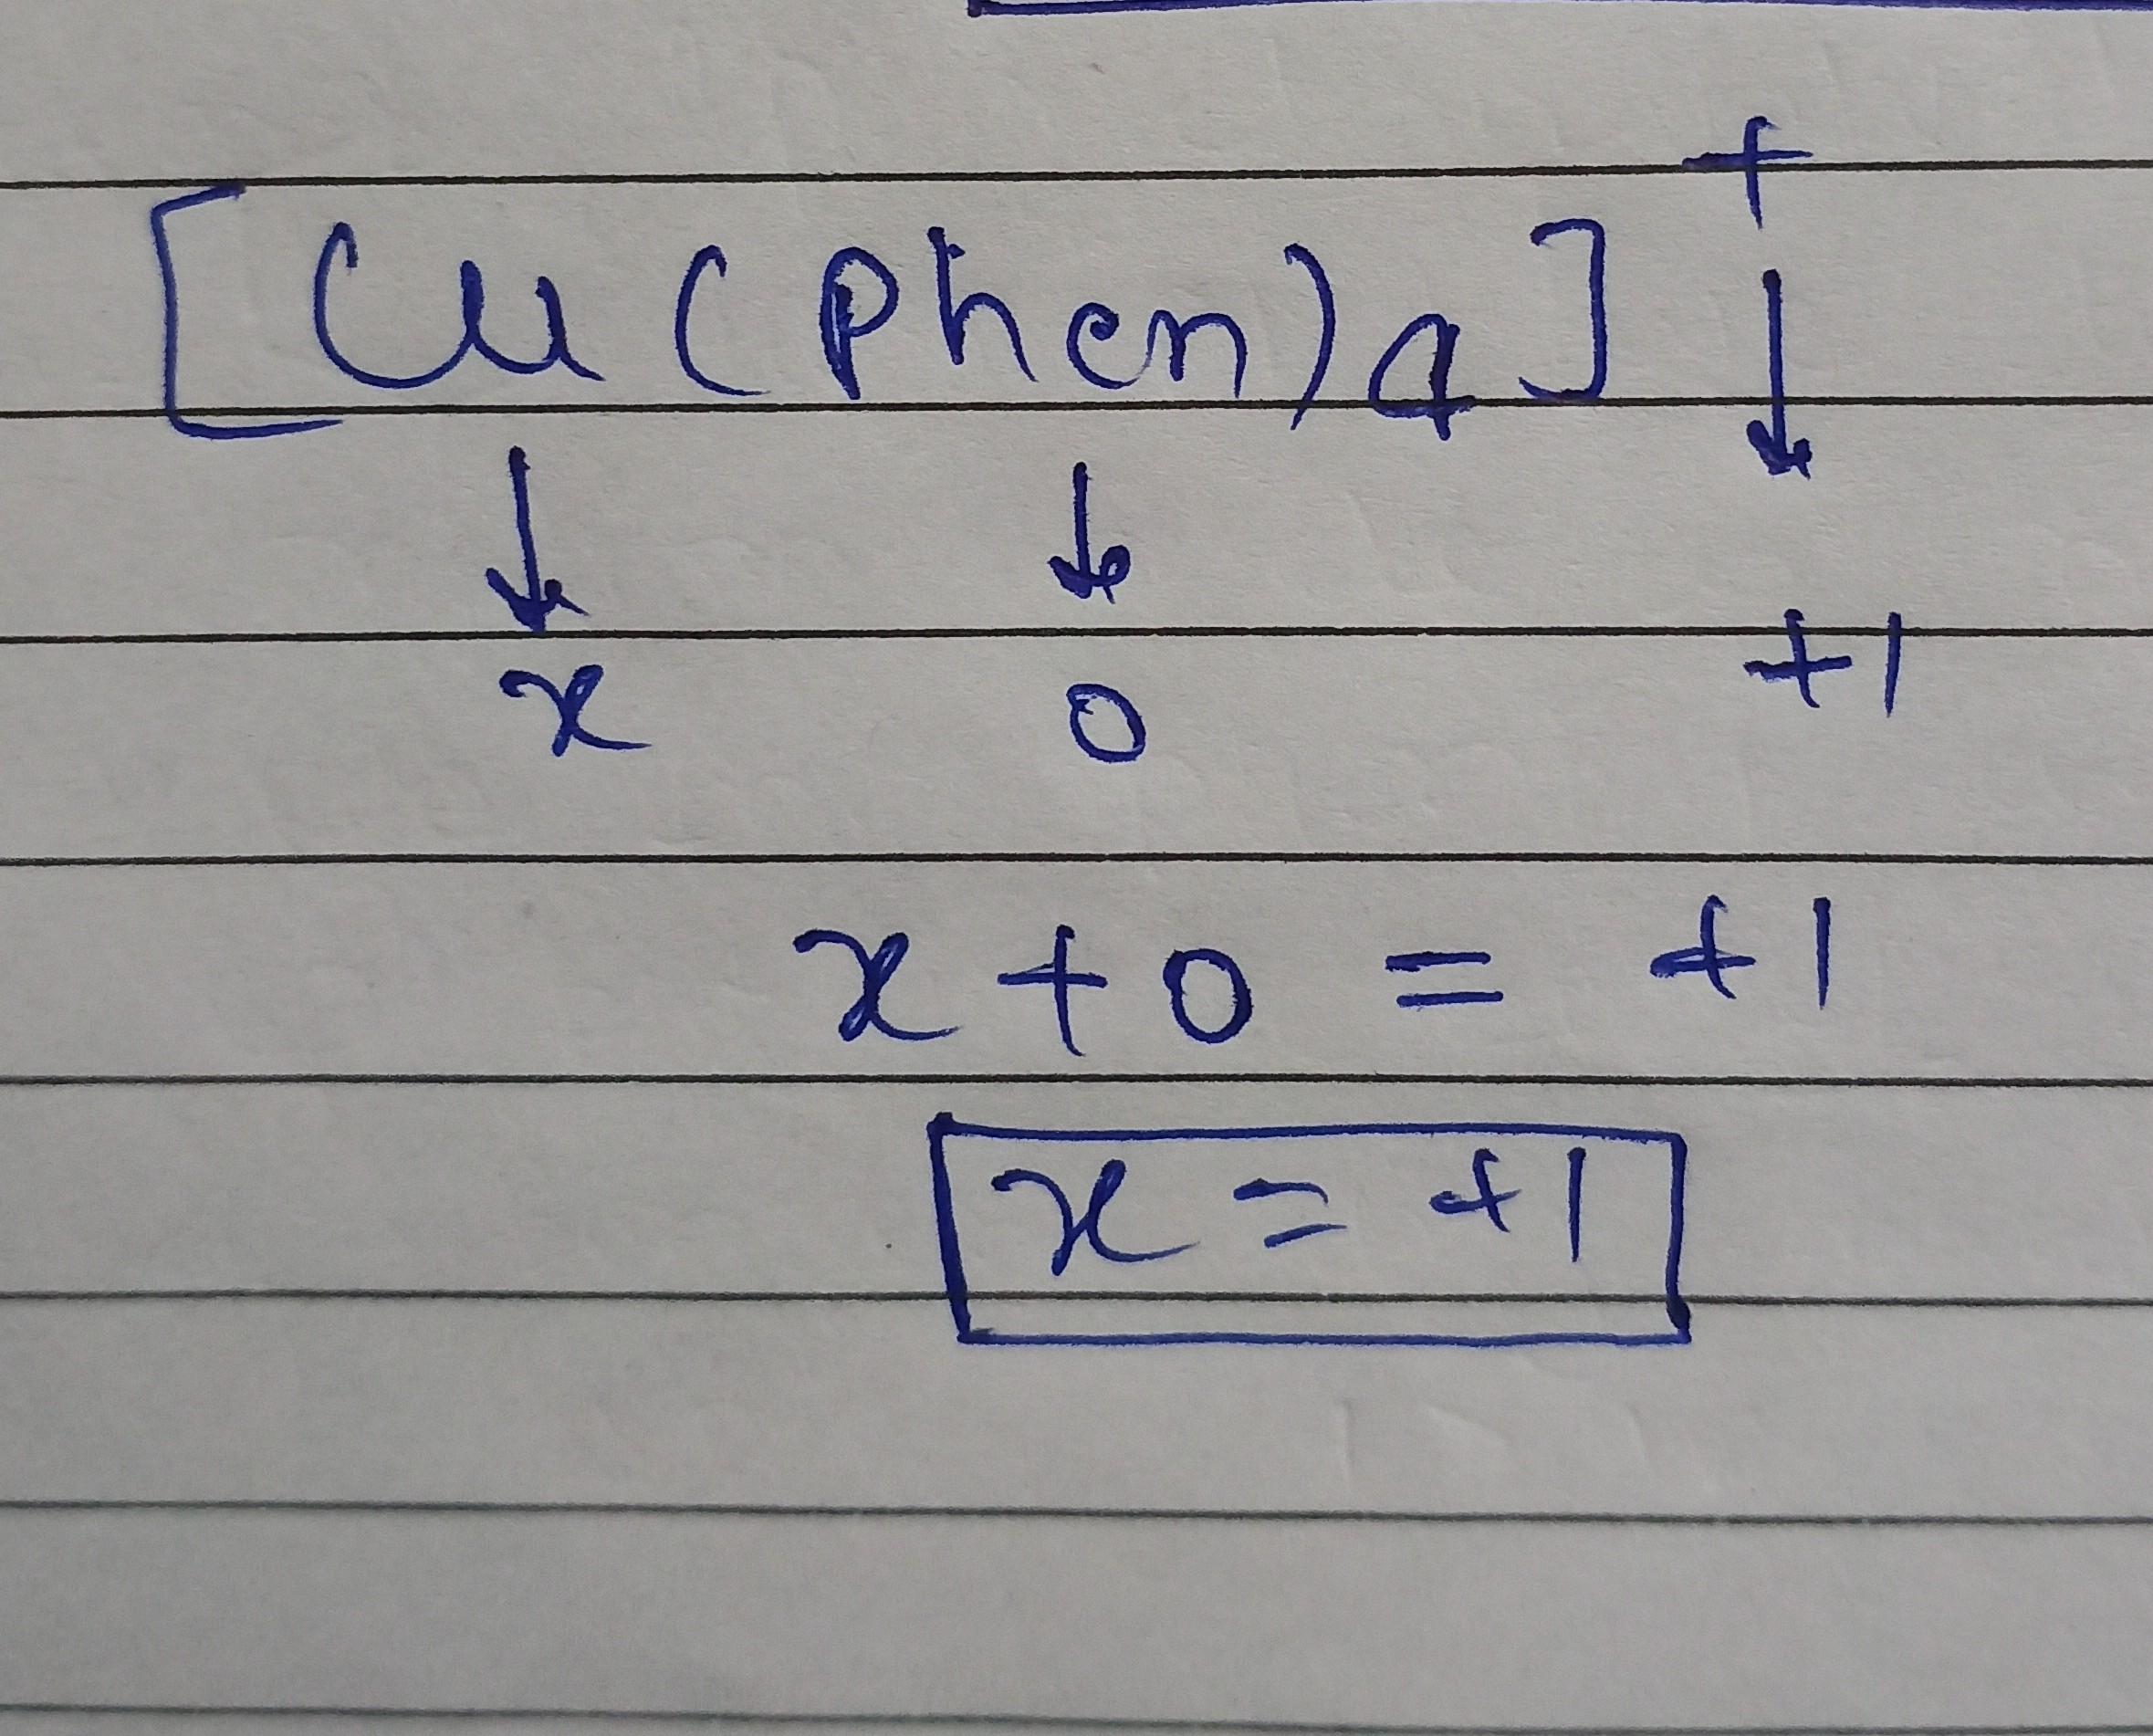 [Cu(Phen)4]+
↓ ↓ ↓
x 0 +1
x + 0 = +1
x = +1